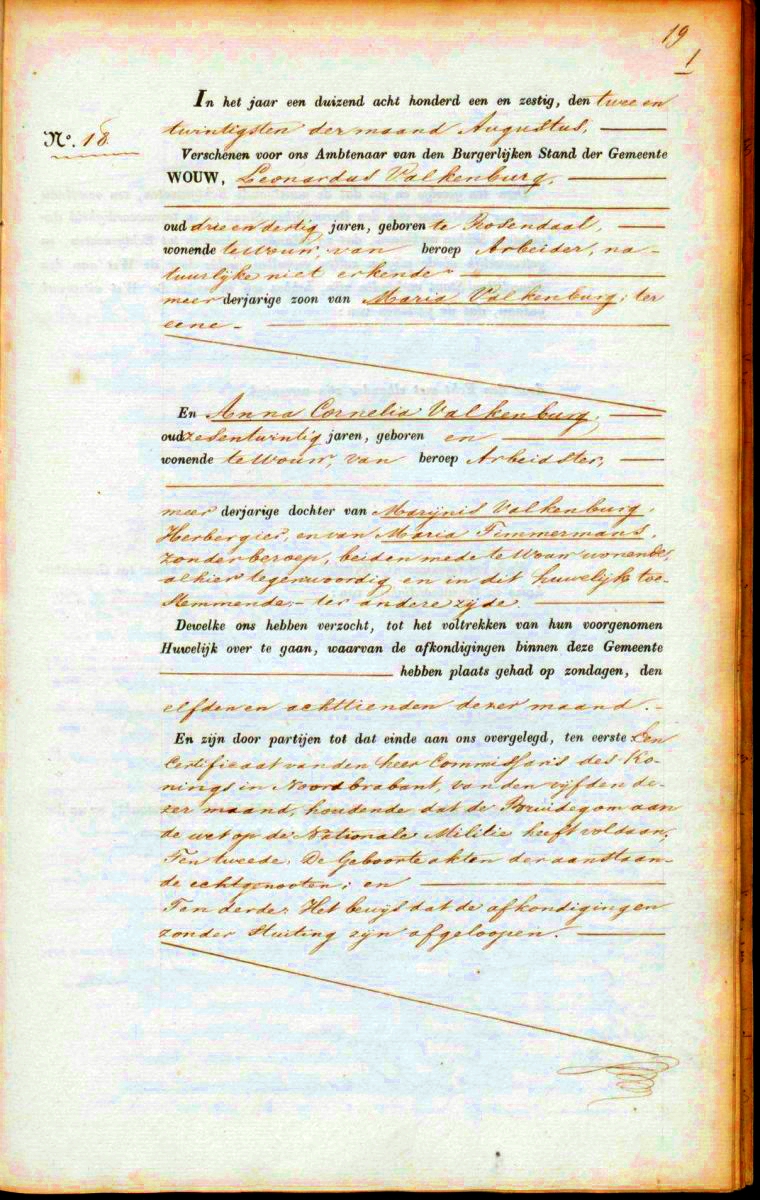 19
1
In het jaar een duizend acht honderd een en zestig, den twee en
No. 18.
twintigsten der maand Augustus,
Verschenen voor ons Ambtenaar van den Burgerlijken Stand der Gemeente
WOUW, Leonardus Valkenburg,
oud drie en dertig jaren, geboren te Rosendaal,
wonende te Wouw, van beroep Arbeider, na-
tuurlijke niet erkende
meerderjarige zoon van Maria Valkenburg; ter
eene
En Anna Cornelia Valkenburg,
oud zesentwintig jaren, geboren en
wonende te Wouw, van beroep Arbeidster,
meerderjarige dochter van Marijnis Valkenburg,
Herbergier, en van Maria Timmermans,
zonder beroep, beiden mede te Wouw wonende,
alhier tegenwoordig en in dit huwelijk toe-
stemmende, ter andere zijde.
Dewelke ons hebben verzocht, tot het voltrekken van hun voorgenomen
Huwelijk over te gaan, waarvan de afkondigingen binnen deze Gemeente
hebben plaats gehad op zondagen, den
elfden en achttienden dezer maand.
En zijn door partijen tot dat einde aan ons overgelegd, ten eerste Een
Certificaat van den heer Commissaris des Ko-
nings in Noordbrabant, van den vijfden de-
zer maand, houdende dat de Bruidegom aan
de wet op de Nationale Militie heeft voldaan;
Ten tweede: De Geboorteakten der aanstaan-
de echtgenooten; en
Ten derde: Het bewijs dat de afkondigingen
zonder stuiting zijn afgeloopen.